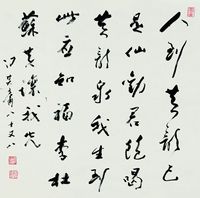 人到黄龍已
是仙勸君飽喝
黄龍泉我生到
此應知福李杜
蘇黄讓我先
馮其庸八十又八